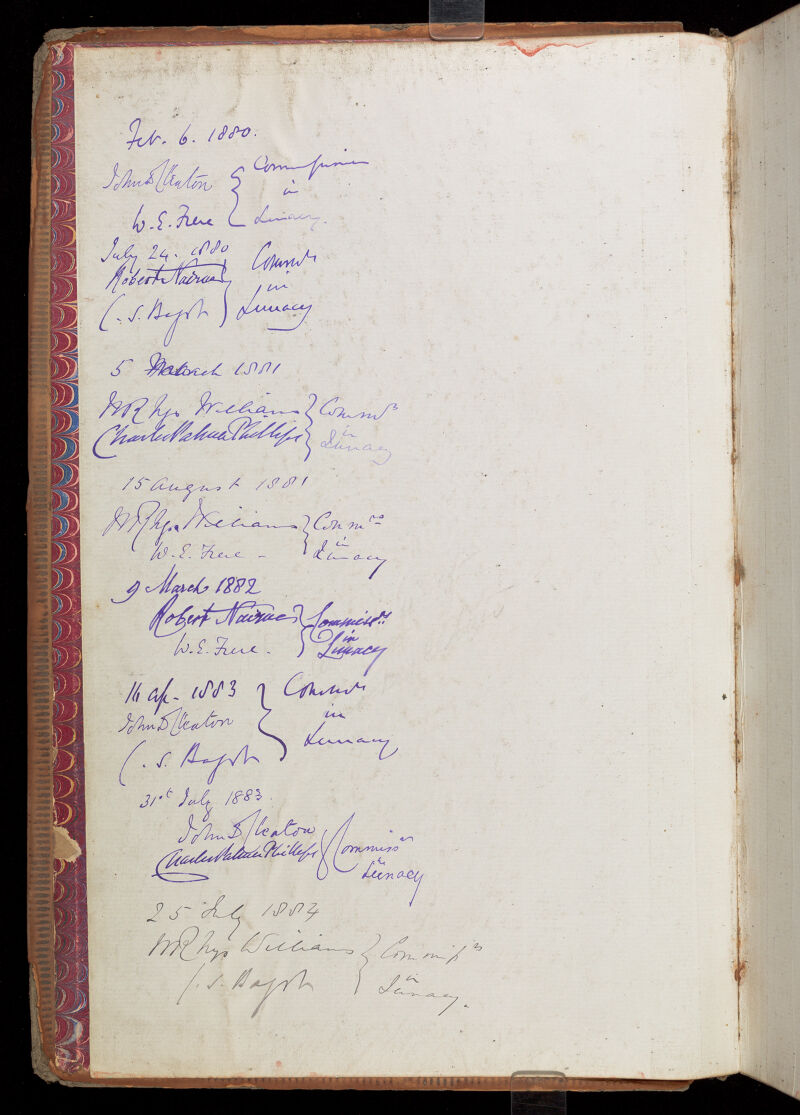 Feb. 6. 1880.
John D Cleaton } Commissioners
in
W. E. Frere Lunacy.
July 24. 1880
Robert Nairne } Commrs
in
C. S. Bagot Lunacy
5 March 1881
W Rhys Williams } Commrs
in
Charles Palmer Phillips Lunacy
15 August 1881
W Rhys Williams } Commrs
in
W. E. Frere - Lunacy
9 March 1882
Robert Nairne } Commissrs
in
W. E. Frere - Lunacy
1883 } Commrs
John D Cleaton in
C. S. Bagot Lunacy
31st July 1883.
John D Cleaton
Charles Palmer Phillips } Commissrs
in
Lunacy
25 July 1884
W Rhys Williams } Commissrs
in
C. S. Bagot Lunacy.